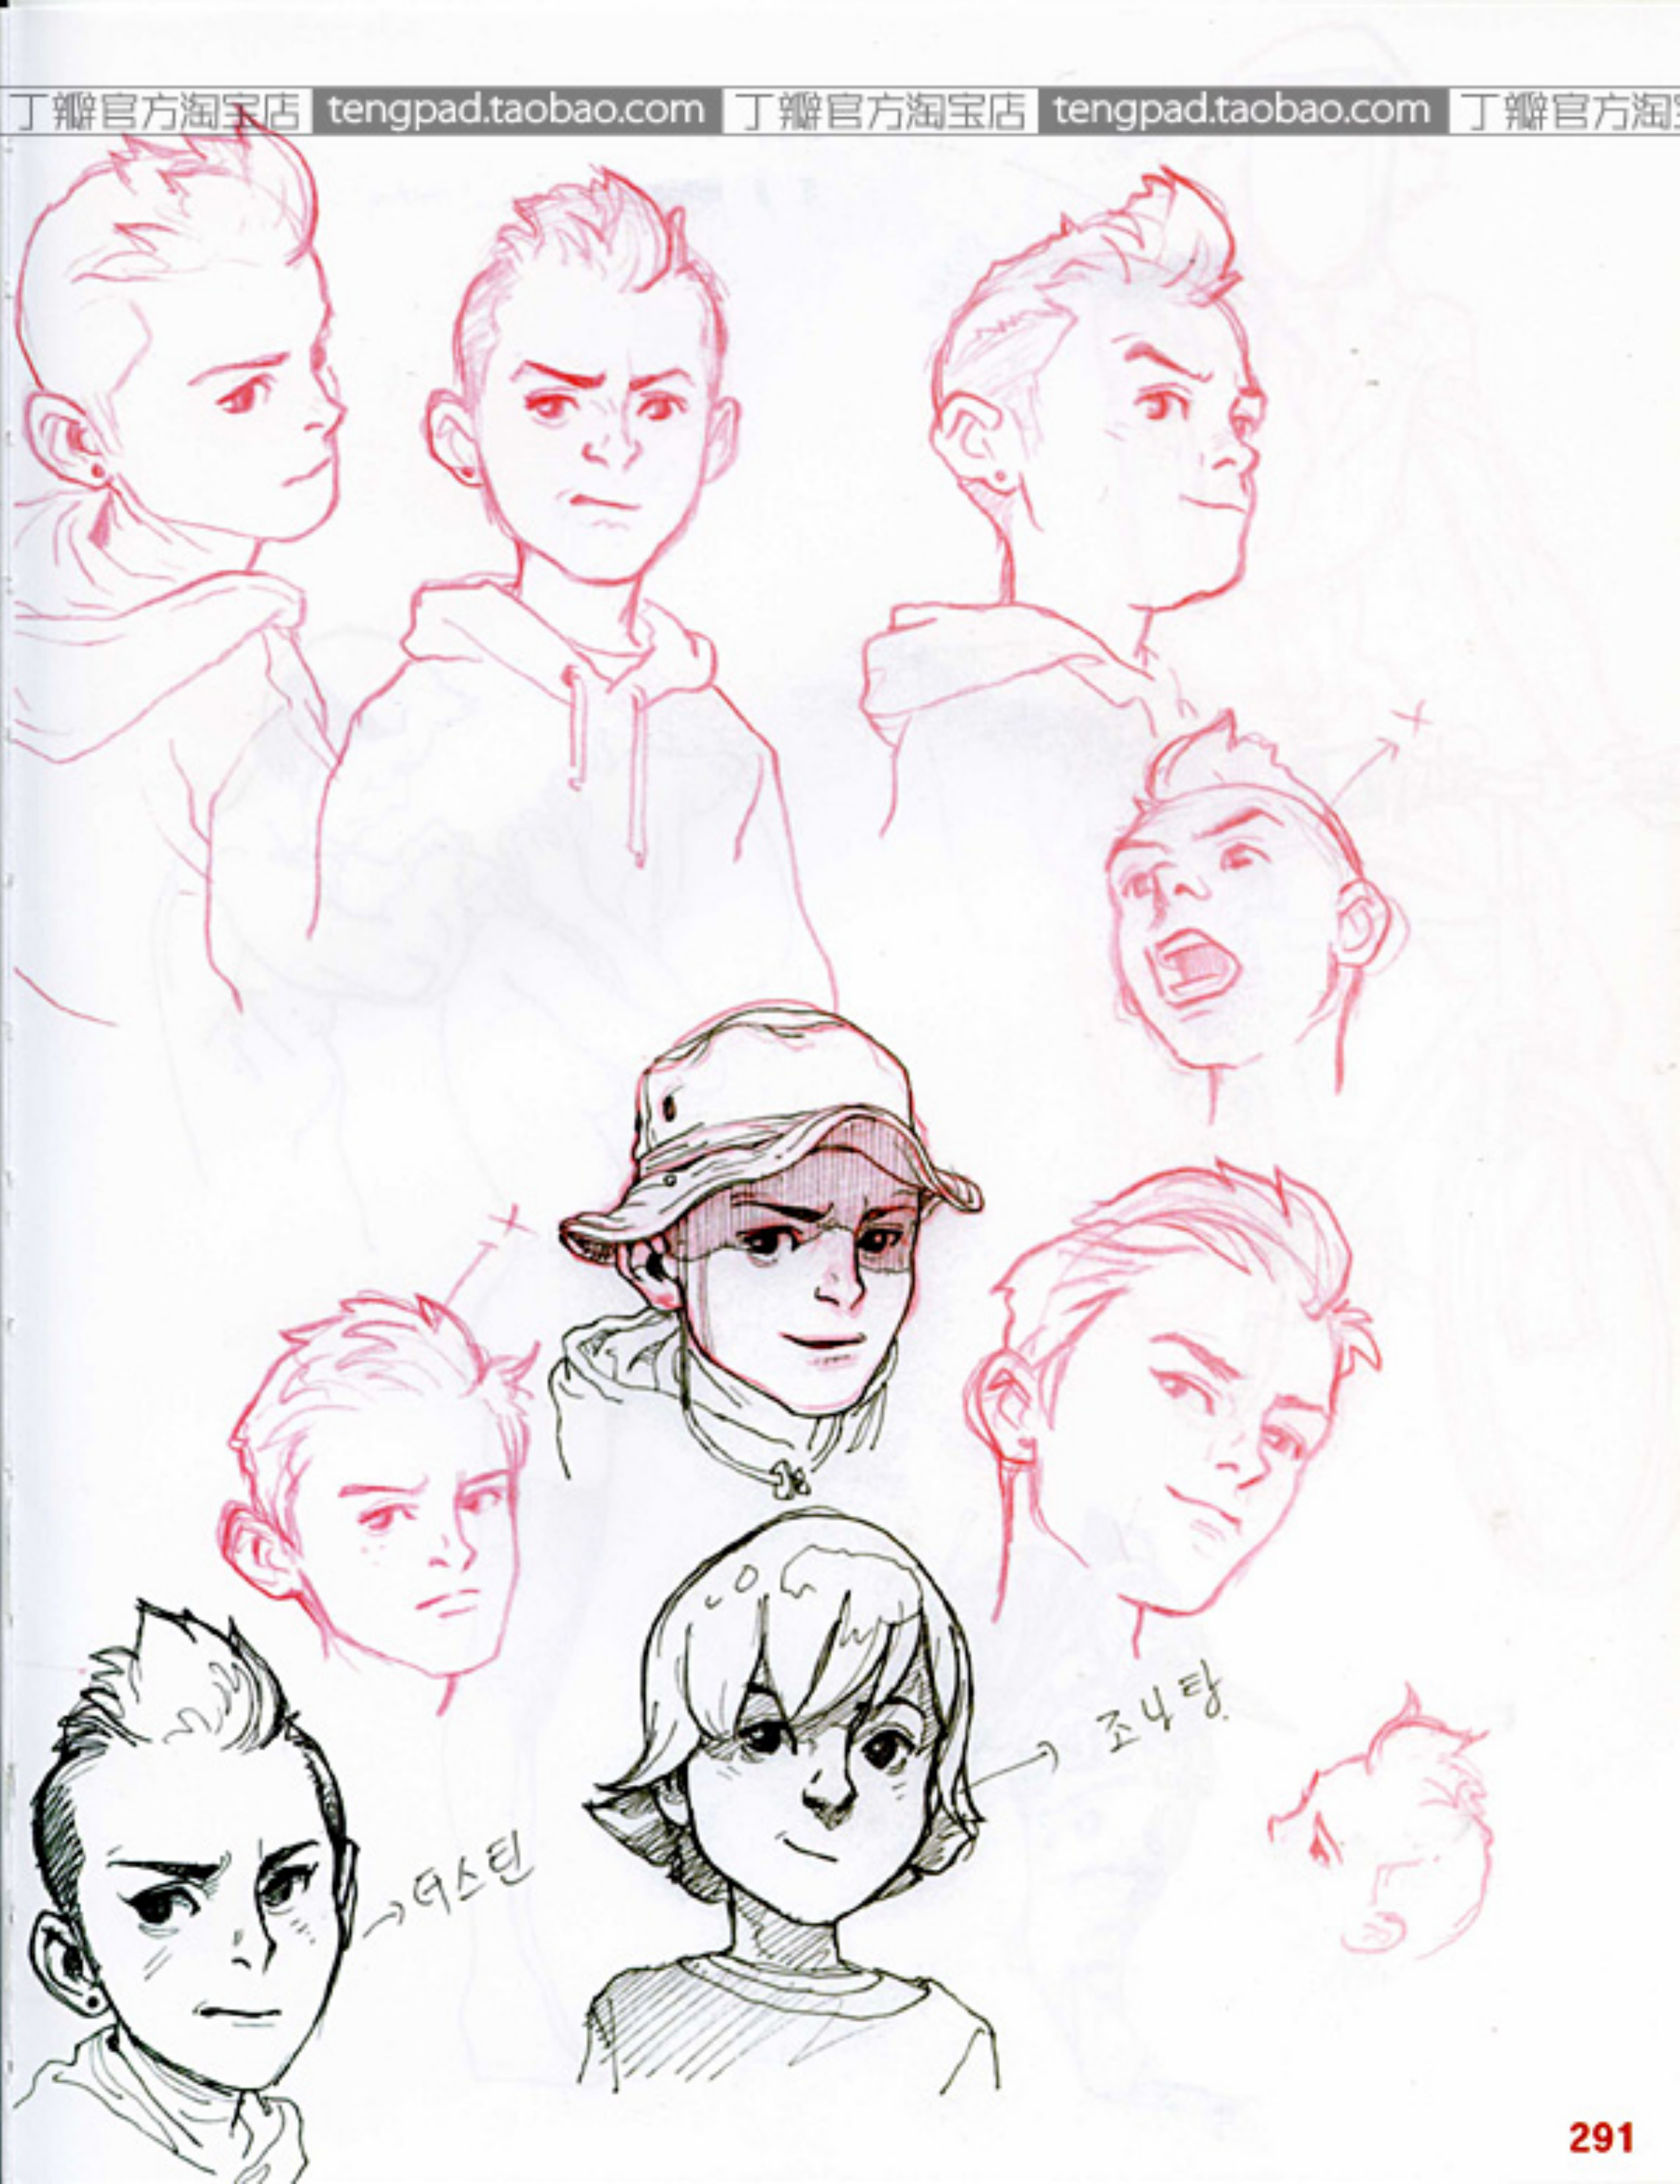 丁瓣官方淘宝店 tengpad.taobao.com 丁瓣官方淘宝店 tengpad.taobao.com 丁瓣官方淘宝
조나탕
더스틴
291